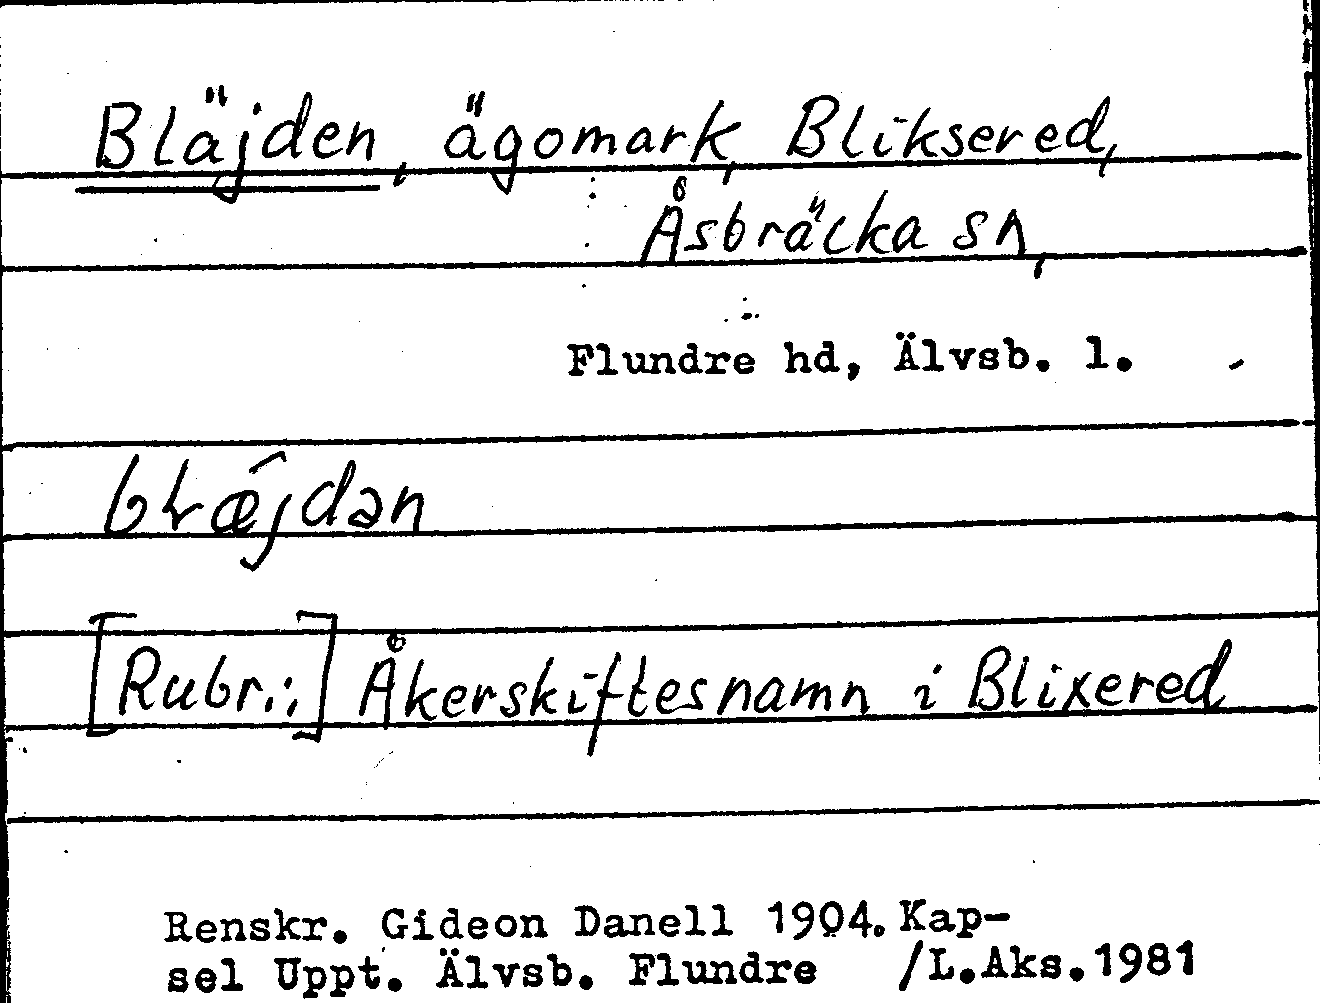 Bläjden, ägomark, Bliksered,
Åsbräcka sn,
Flundre hd, Älvsb. l.
[Rubr.:] Åkerskiftesnamn i Blixered
Renskr. Gideon Danell 1904. Kap-
sel Uppt. Älvsb. Flundre /L.Aks.1981